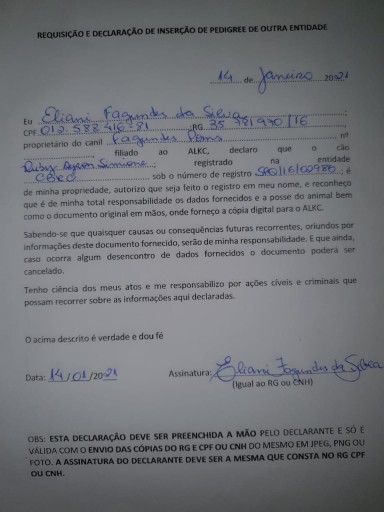 REQUISIÇÃO E DECLARAÇÃO DE INSERÇÃO DE PEDIGREE DE OUTRA ENTIDADE
14 de Janeiro 2021
Eu Eliani Fagundes da Silva
CPF 012.588.416.81 RG
proprietário do canil Fagundes nº
filiado ao ALKC, declaro que o cão
registrado na entidade
CBRC sob o número de registro é
de minha propriedade, autorizo que seja feito o registro em meu nome, e reconheço
que é de minha total responsabilidade os dados fornecidos e a posse do animal bem
como o documento original em mãos, onde forneço a cópia digital para o ALKC.
Sabendo-se que quaisquer causas ou consequências futuras recorrentes, oriundos por
informações deste documento fornecido, serão de minha responsabilidade. E que ainda,
caso ocorra algum desencontro de dados fornecidos o documento poderá ser
cancelado.
Tenho ciência dos meus atos e me responsabilizo por ações cíveis e criminais que
possam recorrer sobre as informações aqui declaradas.
O acima descrito é verdade e dou fé
Data: 14/01/2021 Assinatura: Eliani Fagundes da Silva
(Igual ao RG ou CNH)
OBS: ESTA DECLARAÇÃO DEVE SER PREENCHIDA A MÃO PELO DECLARANTE E SÓ É
VÁLIDA COM O ENVIO DAS CÓPIAS DO RG E CPF OU CNH DO MESMO EM JPEG, PNG OU
FOTO. A ASSINATURA DO DECLARANTE DEVE SER A MESMA QUE CONSTA NO RG CPF
OU CNH.